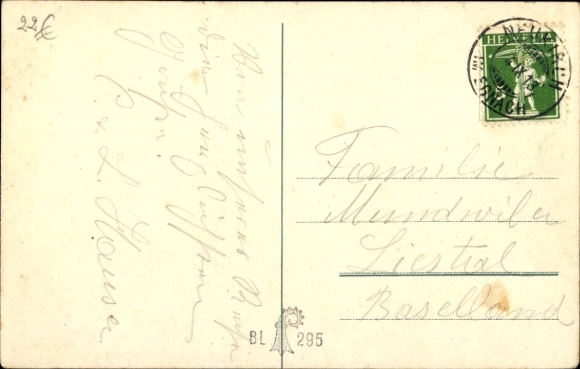 22€
Von unserer Reise
die herzl. Grüssen
B. & L. Hauser
HELVETIA
Familie
Mundwiler
Liestal
Baselland
BL 295